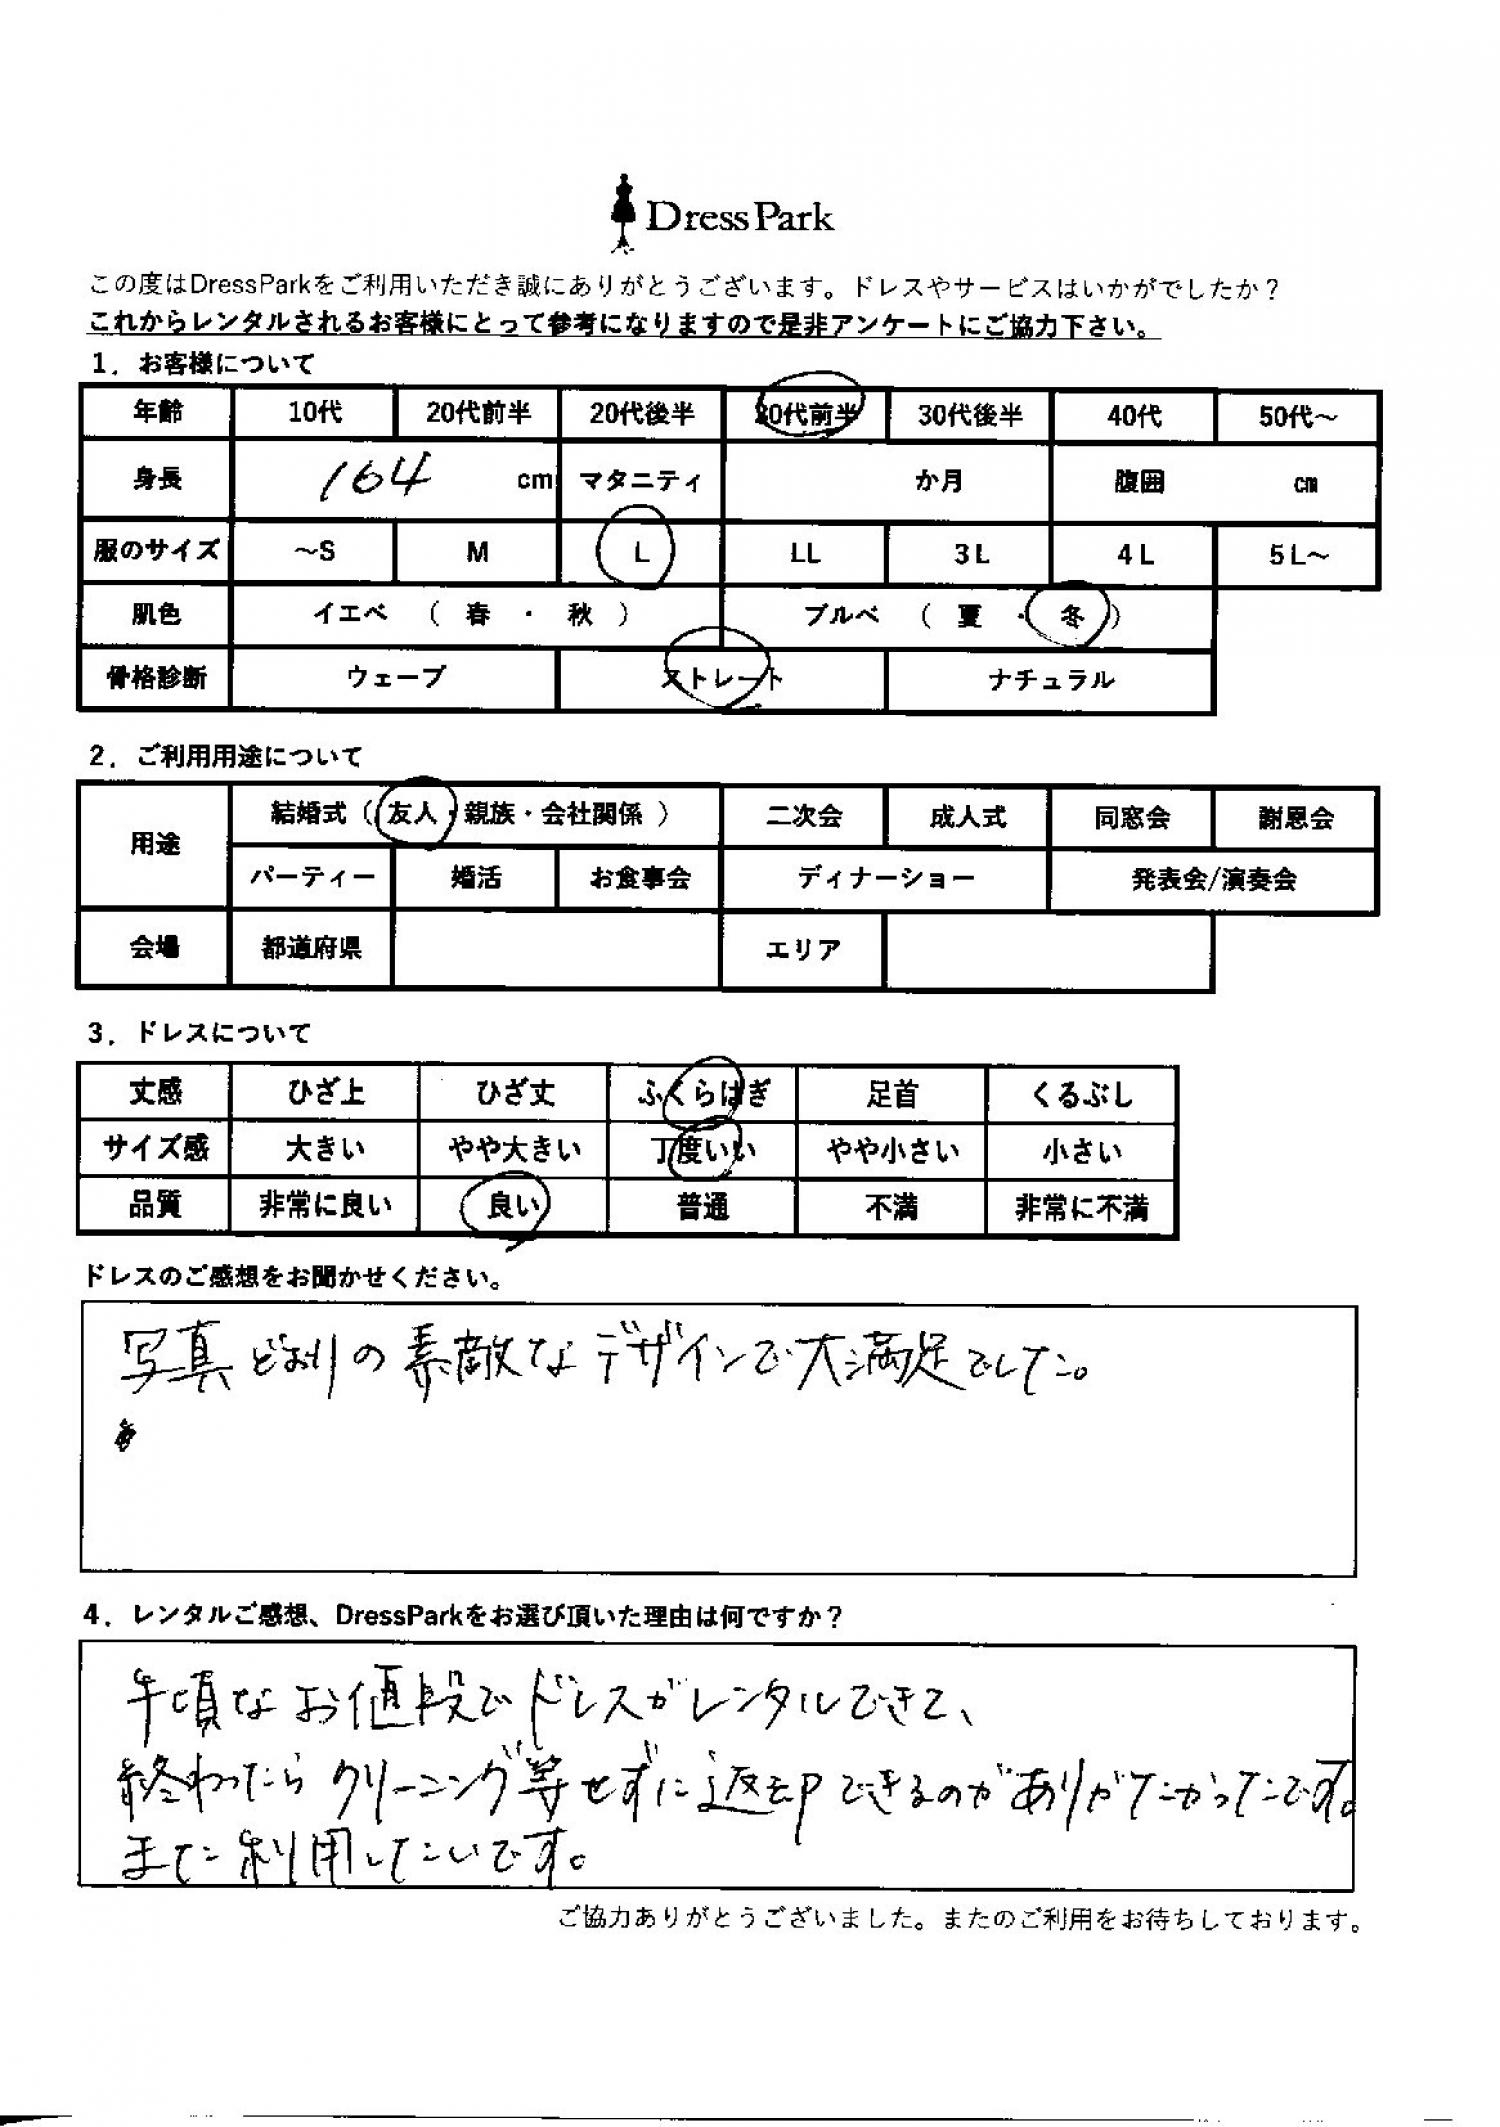 Dress Park
この度はDressParkをご利用いただき誠にありがとうございます。ドレスやサービスはいかがでしたか？
これからレンタルされるお客様にとって参考になりますので是非アンケートにご協力下さい。
1．お客様について
年齢 10代 20代前半 20代後半 30代前半 30代後半 40代 50代～
身長 164 cm マタニティ か月 腹囲 cm
服のサイズ ～S M L LL 3L 4L 5L～
肌色 イエベ （ 春 ・ 秋 ） ブルベ （ 夏 ・ 冬 ）
骨格診断 ウェーブ ストレート ナチュラル
2．ご利用用途について
用途 結婚式（ 友人・親族・会社関係 ） 二次会 成人式 同窓会 謝恩会
パーティー 婚活 お食事会 ディナーショー 発表会/演奏会
会場 都道府県 エリア
3．ドレスについて
丈感 ひざ上 ひざ丈 ふくらはぎ 足首 くるぶし
サイズ感 大きい やや大きい 丁度いい やや小さい 小さい
品質 非常に良い 良い 普通 不満 非常に不満
ドレスのご感想をお聞かせください。
写真どおりの素敵なデザインで大満足でした。
4．レンタルご感想、DressParkをお選び頂いた理由は何ですか？
手頃なお値段でドレスがレンタルできて、
終わったらクリーニング等せずに返却できるのがありがたかったです。
また利用したいです。
ご協力ありがとうございました。またのご利用をお待ちしております。